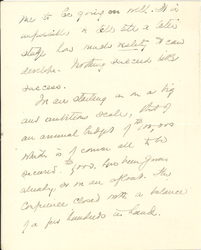 me to be going on well. It is
impossible to tell till a later
stage how much reality it can
develope. Nothing succeeds like
success.
We are starting in on a big
and ambitious scale, that of
an annual budget of
which is of course all to be
secured. $ has been given
already or on an afloat. The
Conference closed with a balance
of a few hundreds in hand.